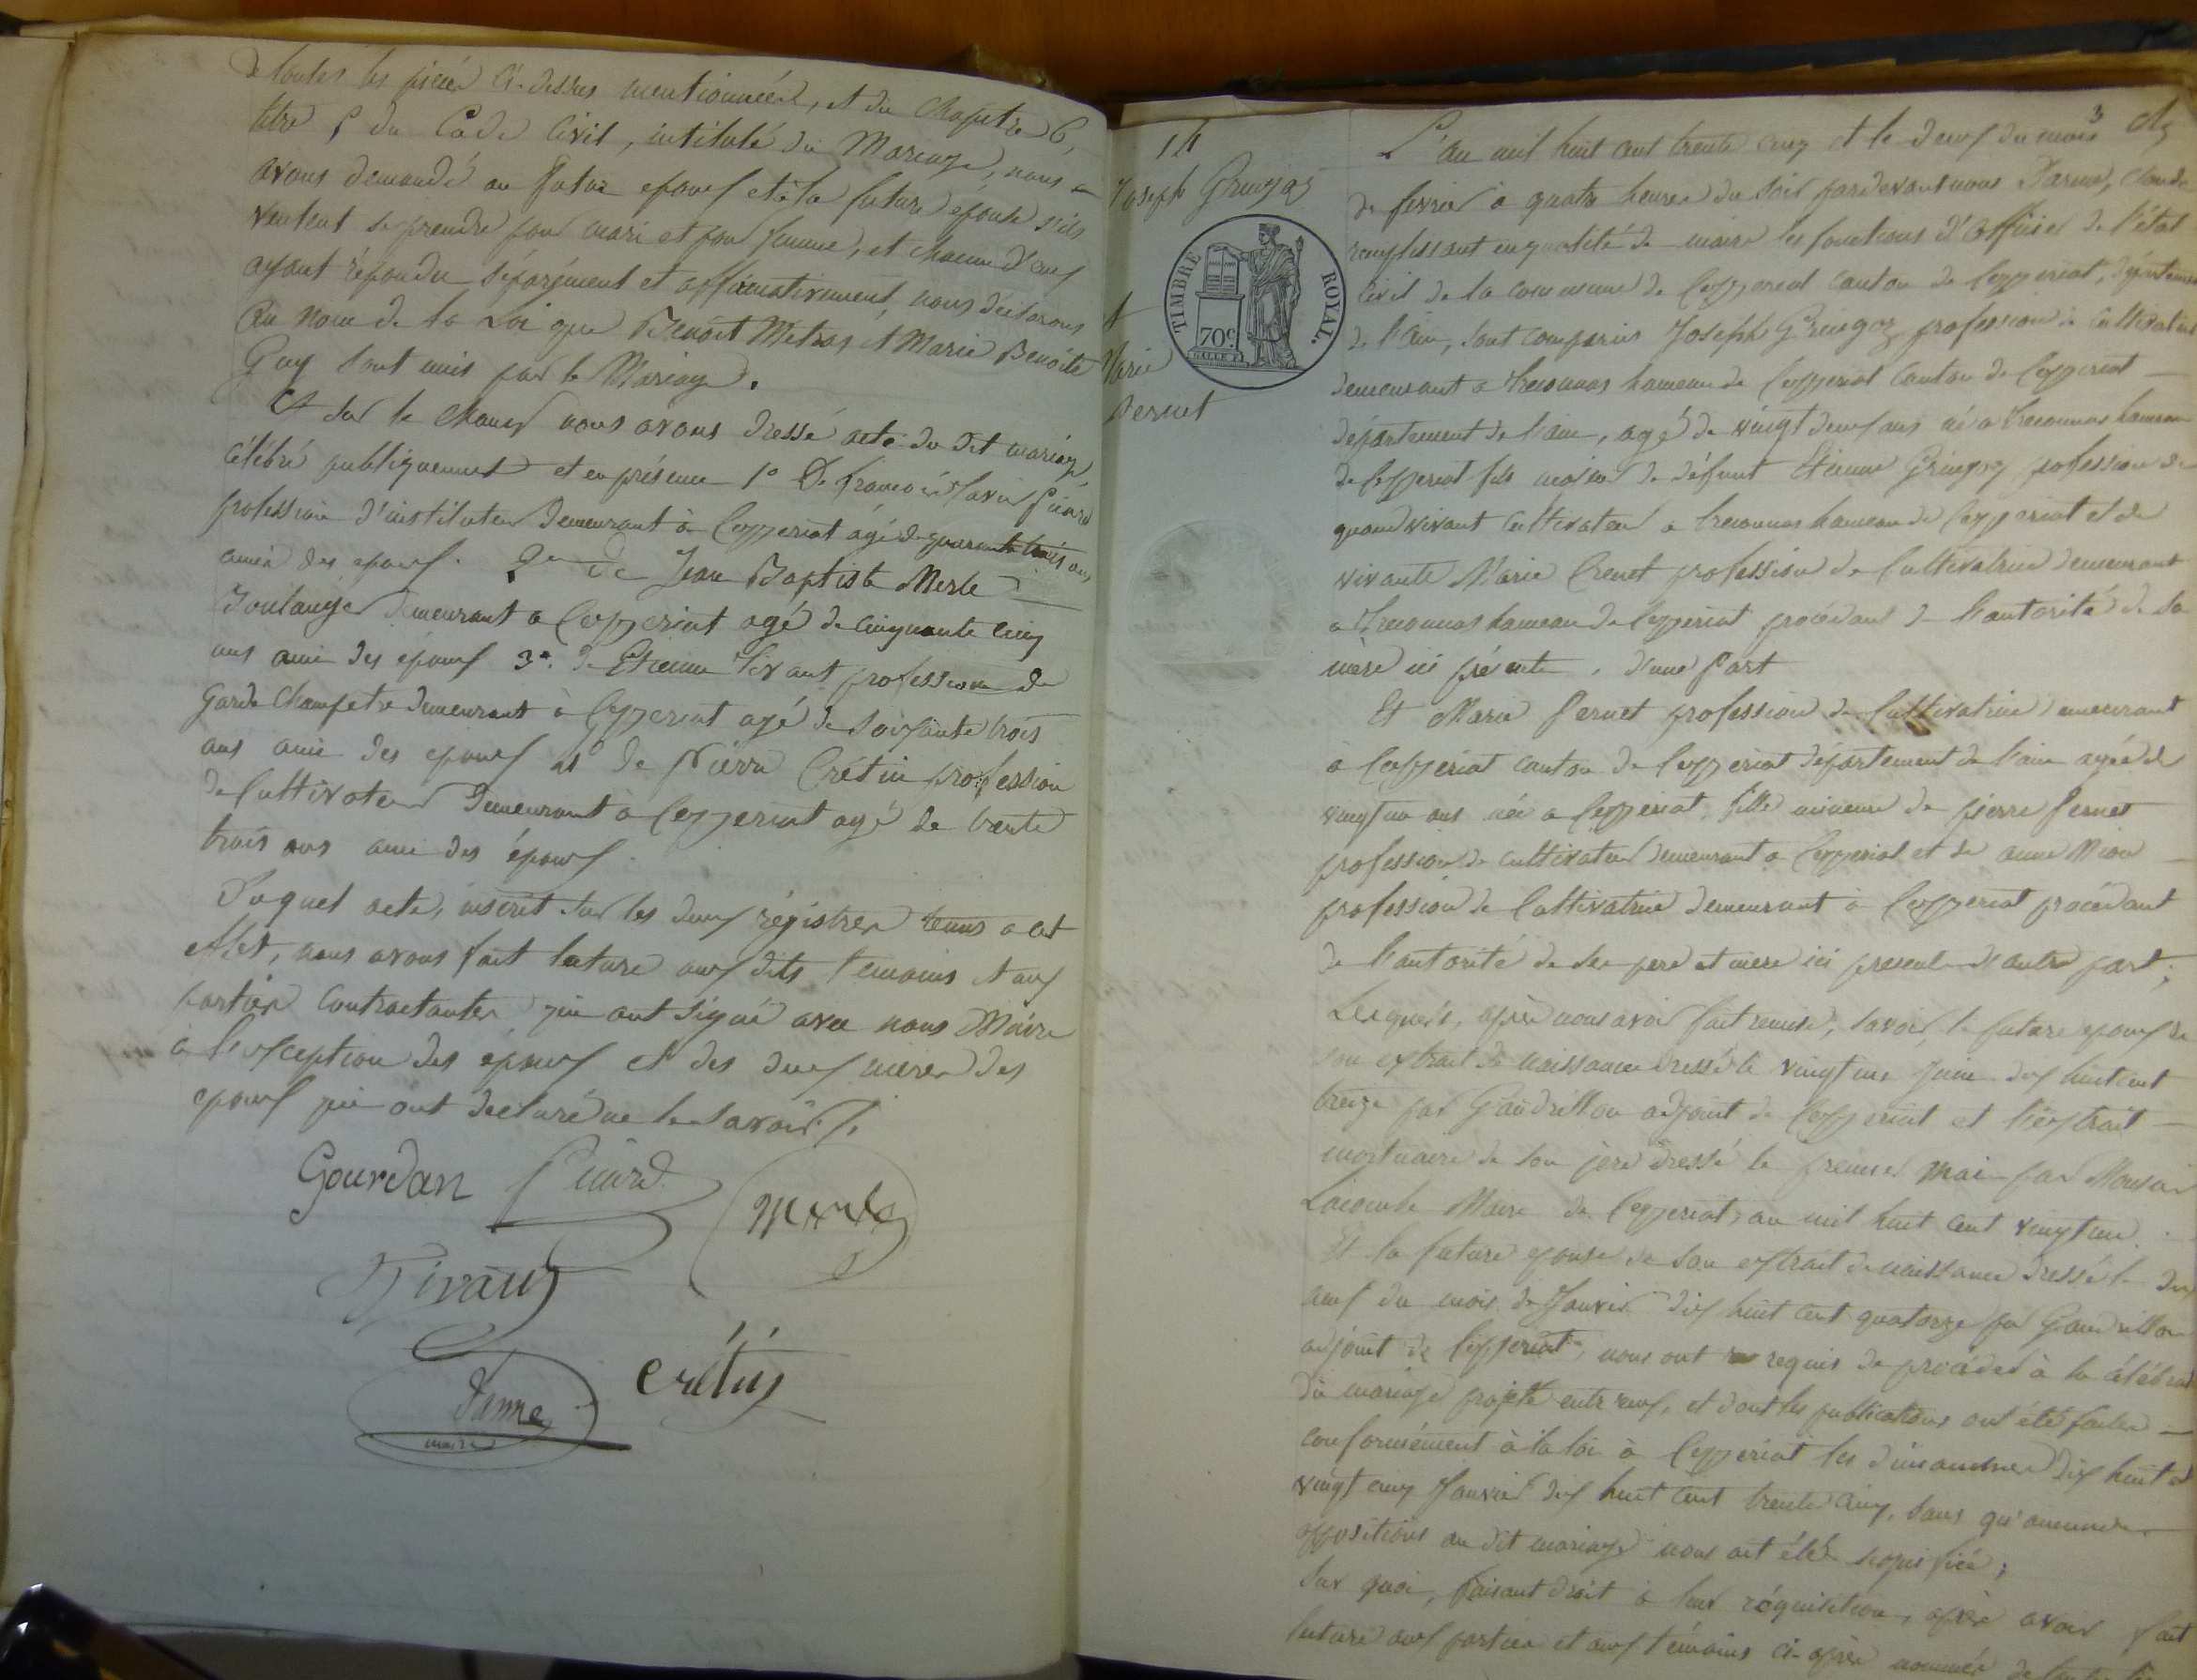 De toutes les pièces ci-dessus mentionnées, et du chapitre 6,
titre 5 du Code Civil, intitulé du Mariage, nous
avons demandé au futur epoux et à la future épouse s'ils
veulent se prendre pour mari et pour femme, et chacun d'eux
ayant répondu séparément et affirmativement, nous déclarons
au nom de la Loi que Benoit Metras et Marie Benoite
Guy sont unis par le Mariage.
Et sur le champ nous avons dressé acte du dit mariage
célébré publiquement et en présence 1º De françois xavier Picard
profession d'instituteur demeurant à Ceyzeriat agé de quarante trois ans
amis des epoux. 2º de Jean Baptiste Merle
Boulanger demeurant a Ceyzeriat agé de cinquante cinq
ans ami des époux 3º. de Etienne Tivant profession de
garde champetre demeurant à Ceyzeriat agé de soixante trois
ans ami des epoux 4º de Pierre Crétin profession
de Cultivateur demeurant à Ceyzeriat agé de trente
trois ans ami des époux.
Duquel acte, inscrit sur les deux régistres tenus a cet
effet, nous avons fait lecture aux dits temoins et aux
parties contractantes qui ont signé avec nous Maire
à l'exception des epoux et des deux meres des
epoux qui ont declaré ne le savoir ./.
Gourdan Picard
Merle
Tivant
crétin
Darme
maire
14
Joseph Gringoz
et
Marie
Pernet
TIMBRE ROYAL.
70c
3
L'an mil huit cent trente cinq et le deux du mois
de fevrier à quatre heures du soir pardevant nous Darme, Claude
remplissant en qualité de maire les fonctions d'officier de l'état
civil de la commune de Ceyzeriat canton de Ceyzeriat, département
de l'ain, sont comparus Joseph Gringoz profession de cultivateur
demeurant a treconnas hameau de Ceyzeriat canton de Ceyzeriat
département de l'ain, agé de vingt deux ans né a treconnas hameau
de Ceyzeriat fils majeur de défunt Etienne Gringoz profession de
quand vivant cultivateur a treconnas hameau de Ceyzeriat et de
vivante Marie Crenet profession de Cultivatrice demeurant
a treconnas hameau de Ceyzeriat procédant de l'autorité de sa
mère ici présente, d'une part
Et Marie Pernet profession de Cultivatrice demeurant
à Ceyzeriat canton de Ceyzeriat département de l'ain agée de
vingt un ans née a Ceyzeriat fille mineure de pierre Pernet
profession de cultivateur demeurant a Ceyzeriat et de anne
profession de Cultivatrice demeurant à Ceyzeriat procédant
de l'autorité de ses pere et mere ici presents d'autre part;
Lesquels, après nous avoir fait remise, savoir, le future epoux de
son extrait de naissance dressé le vingt un Juin dix huit cent
treize par Gaudrillon adjoint de Ceyzeriat et l'extrait
mortuaire de son père dressé le premier mai par Monsieur
Maire de Ceyzeriat, an mil huit cent vingt un
Et la future epouse de son extrait de naissance dressé le dix
neuf du mois de Janvier dix huit cent quatorze par Gaudrillon
adjoint de Ceyzeriat, nous ont requis de procéder à la célébration
du mariage projeté entr'eux, et dont les publications ont été faites
conformément à la loi à Ceyzeriat les dimanches dix huit et
vingt cinq Janvier dix huit cent trente cinq, sans qu'aucunes
oppositions au dit mariage nous ait été signifiée;
Sur quoi, faisant droit à leur réquisition, après avoir fait
lecture aux parties et aux témoins ci-après nommés de toutes